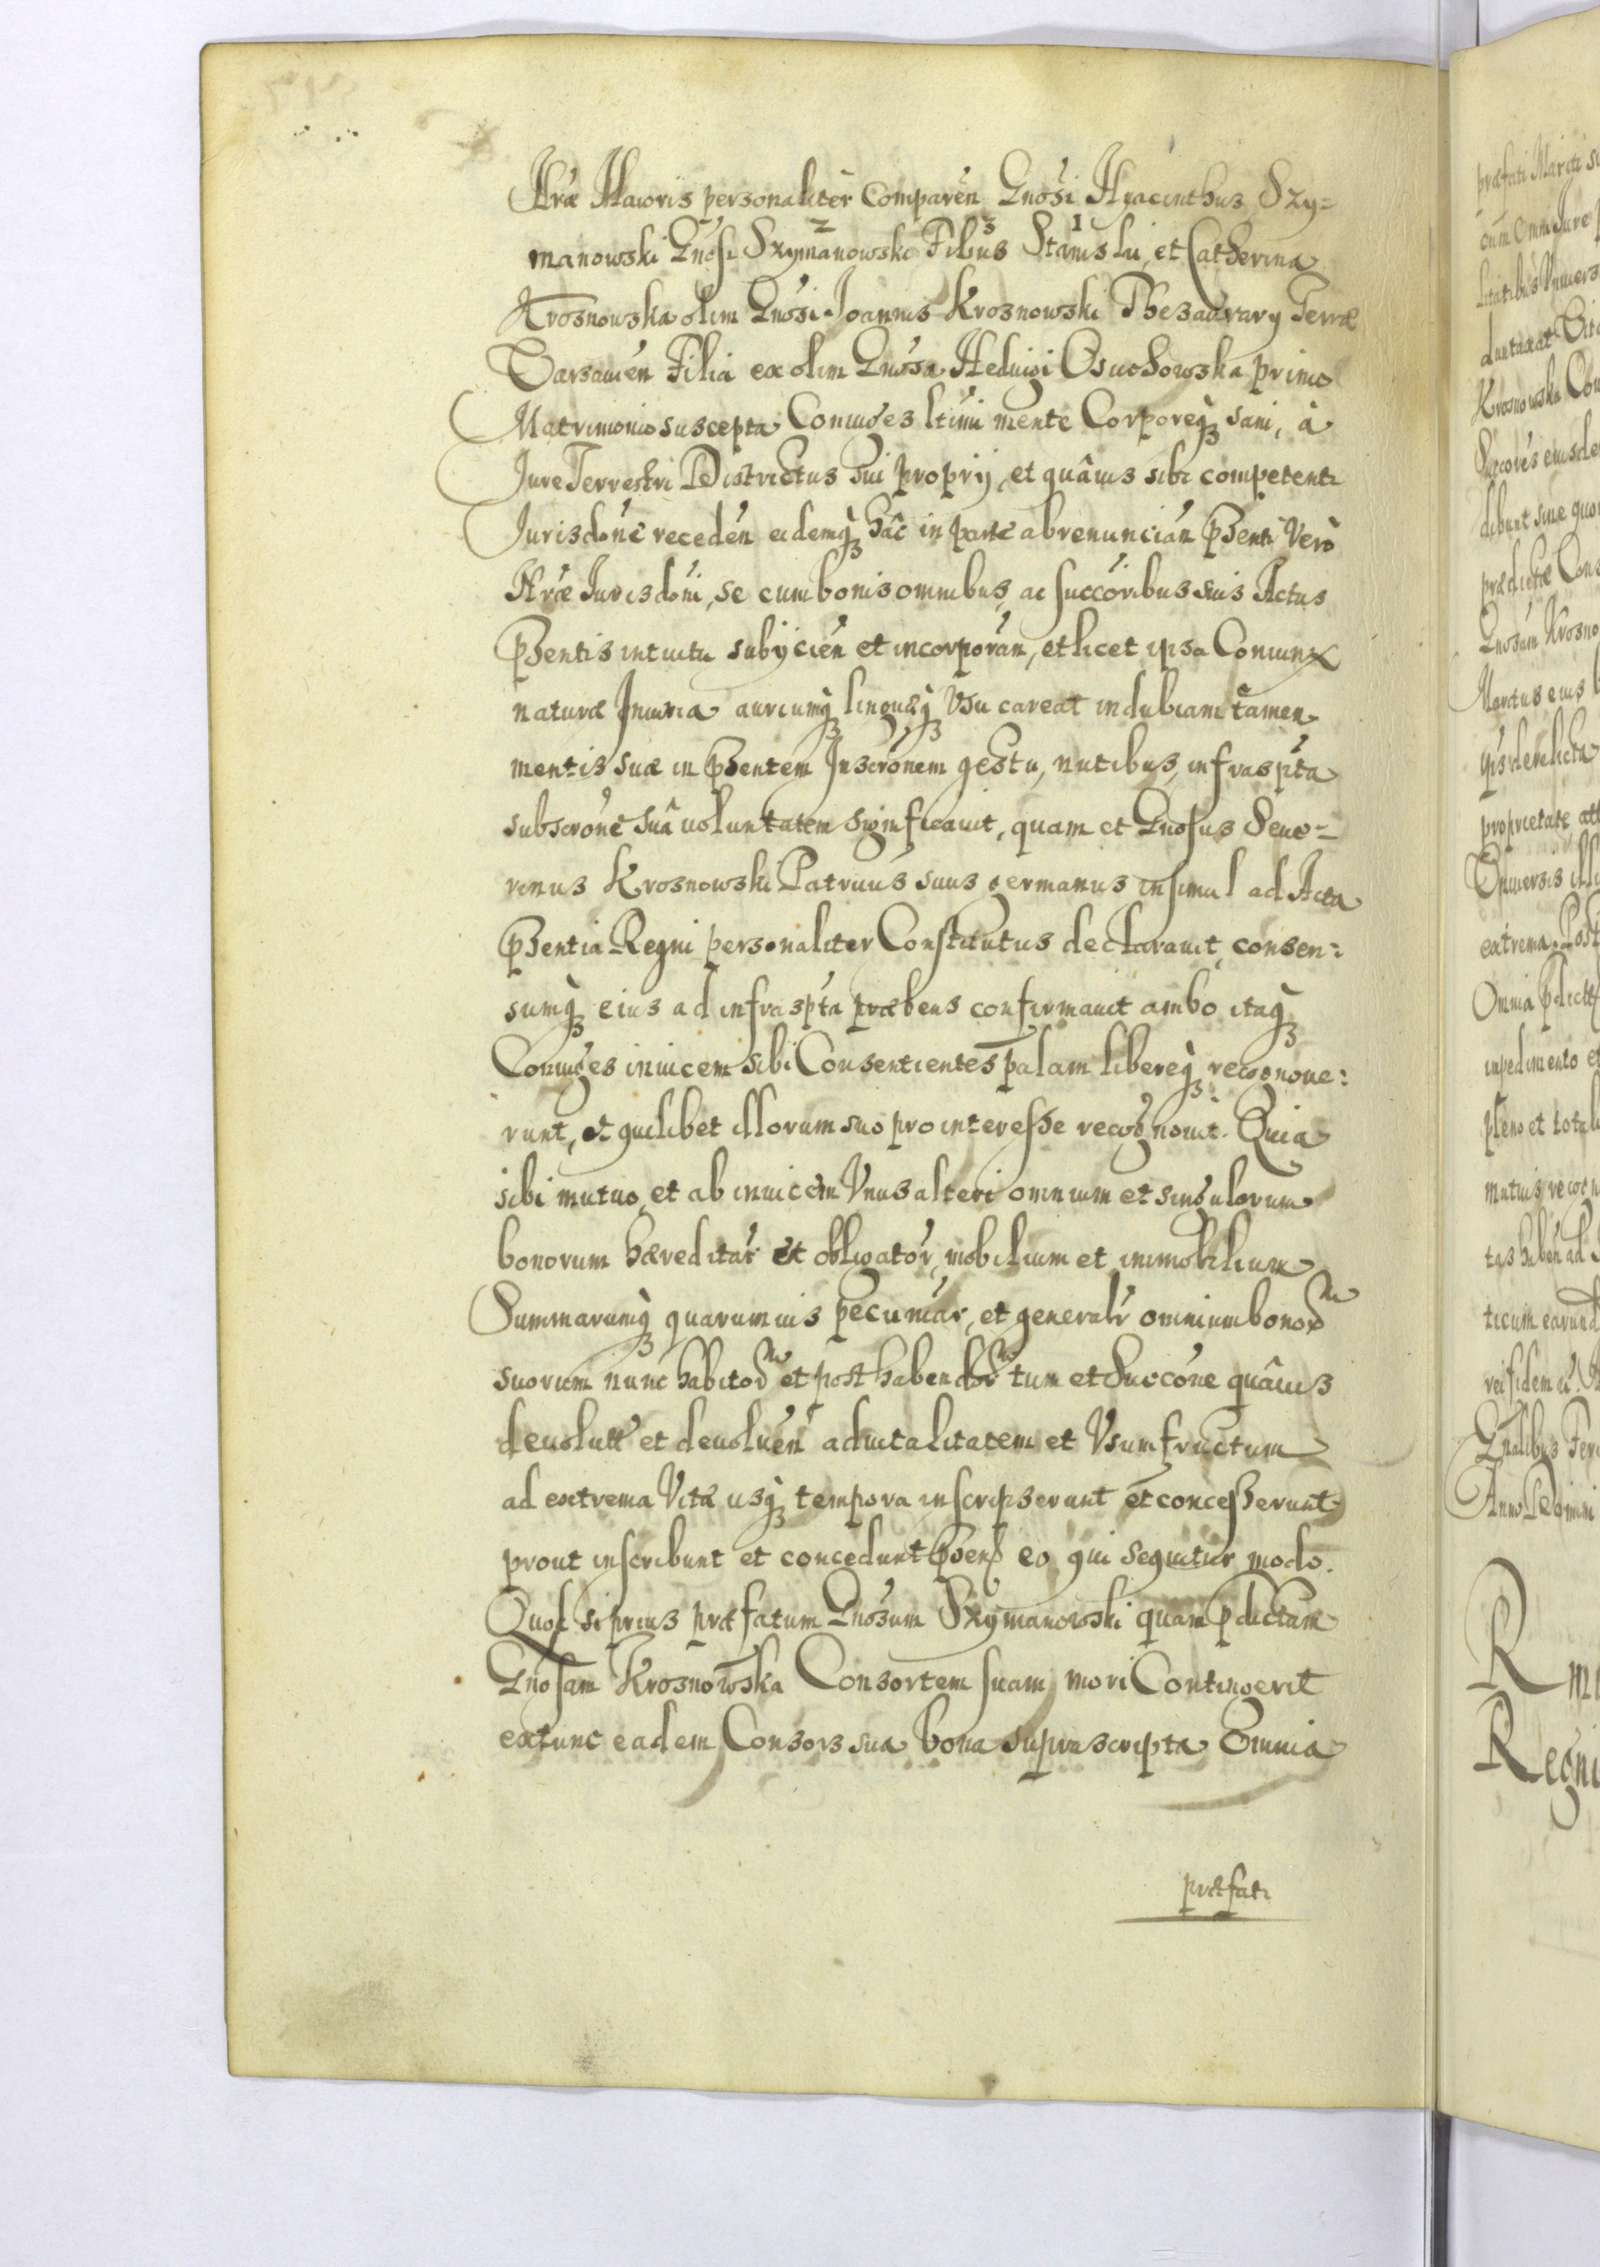 Nrae Maioris personaliter Comparen̄ Gnosi Hyacinthus Szy=
manowski Gnosi Szymanowski Filius Stanislai, et Catherina
2 3 1
Krosnowska olim Gnosi Joannis Krosnowski Thesaurarÿ Terrae
Varsavien̄ Filia ex olim Gnosa Hedvigi Osuchowska primo
Matrimonio suscepta Coniuges ltimi mente Corporeq̨ sani, à
Jure Terrestri Districtus sui proprÿ, et quâuis sibi competenti
Jurisdōne receden̄ eidemq̨ hâc in parte abrenuncian̄ p̄senti Verò
Nrae Jurisdōni, se cum bonis omnibus, ac succōribus suis Actus
p̄sentis intuitu subÿcien̄ et incorporan̄, et licet ipsa Coniunx
naturae Iniuria auriumq̨ linguaeq̨ Usu careat indubiam tamen
mentis suae in p̄sentem Inscrōnem gestu, nutibus, infraspta
subscrōne suâ voluntatem significauit, quam et Gnosus Seve=
rinus Krosnowski Patruus suus germanus insimul ad Acta
p̄sentia Regni personaliter Constitutus declarauit, consen:
sumq̨ eius ad infraspta praebens confirmauit ambo itaq̨
Coniuges inuicem sibi Consentientes palam libereq̨ recognoue:
runt, et quilibet illorum suo pro interesse recognouit. Quia
sibi mutuo, et ab inuicem Vnus alteri omnium et singulorum
bonorum haereditar̄ et obligator̄, mobilium et immobilium
Summarumq̨ quarumuis pecuniar̄, et generalr̄ omnium bonorum
suorum nunc habitorum et post habendorum tum et Succōne quâuis
deuolut̄ et deuoluen̄ aduitalitatem et Vsumfructum
ad extrema Vitae usq̨ tempora inscripserunt et concesserunt
prout inscribunt et concedunt p̄sen̄ eo qui sequitur modo.
Quod si prius praefatum Gnosum Szymanowski quam p̄dictam
Gnosam Krosnowska Consortem suam mori Contingerit
extunc eadem Consors sua bona suprascripta Omnia
praefati
praefati Mariti
Omni Jure
duntaxat
Krosnowska
dibunt sine
praedictae
Gnosam Krosno
Maritus eius
proprietate
Vniuersis
extrema
Omnia p̄dict
impedimento et
pleno et total
mutuis
ticum
Anno Domini
R
Regni